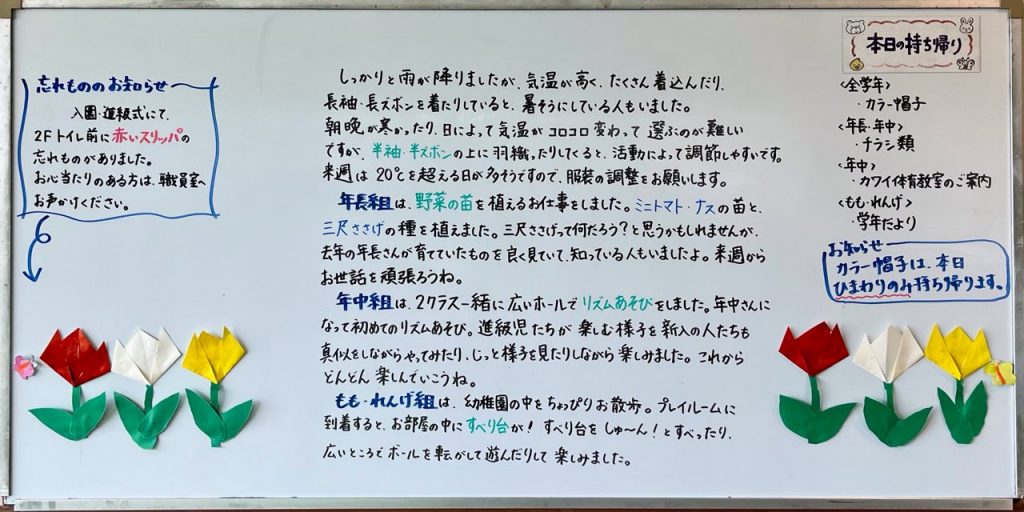 忘れもののお知らせ
入園・進級式にて、
2Fトイレ前に赤いスリッパの
忘れものがありました。
お心当たりのある方は、職員室へ
お声かけください。
しっかりと雨が降りましたが、気温が高く、たくさん着込んだり、
長袖・長ズボンを着たりしていると、暑そうにしている人もいました。
朝晩が寒かったり、日によって気温がコロコロ変わって選ぶのが難しい
ですが、半袖・半ズボンの上に羽織ったりしてくると、活動によって調節しやすいです。
来週は20℃を超える日が多そうですので、服装の調整をお願いします。
年長組は、野菜の苗を植えるお仕事をしました。ミニトマト・ナスの苗と、
三尺ささげの種を植えました。三尺ささげって何だろう？と思うかもしれませんが、
去年の年長さんが育てていたものを良く見ていて、知っている人もいましたよ。来週から
お世話を頑張ろうね。
年中組は、2クラス一緒に広いホールでリズムあそびをしました。年中さんに
なって初めてのリズムあそび。進級児たちが楽しむ様子を新入の人たちも
真似をしながらやってみたり、じっと様子を見たりしながら楽しみました。これから
どんどん楽しんでいこうね。
もも・れんげ組は、幼稚園の中をちょっぴりお散歩。プレイルームに
到着すると、お部屋の中にすべり台が！すべり台をしゅ〜ん！とすべったり、
広いところでボールを転がして遊んだりして楽しみました。
本日の持ち帰り
<全学年>
・カラー帽子
<年長・年中>
・チラシ類
<年中>
・カワイ体育教室のご案内
<もも・れんげ>
・学年だより
お知らせ
カラー帽子は、本日
ひまわりのみ持ち帰ります。